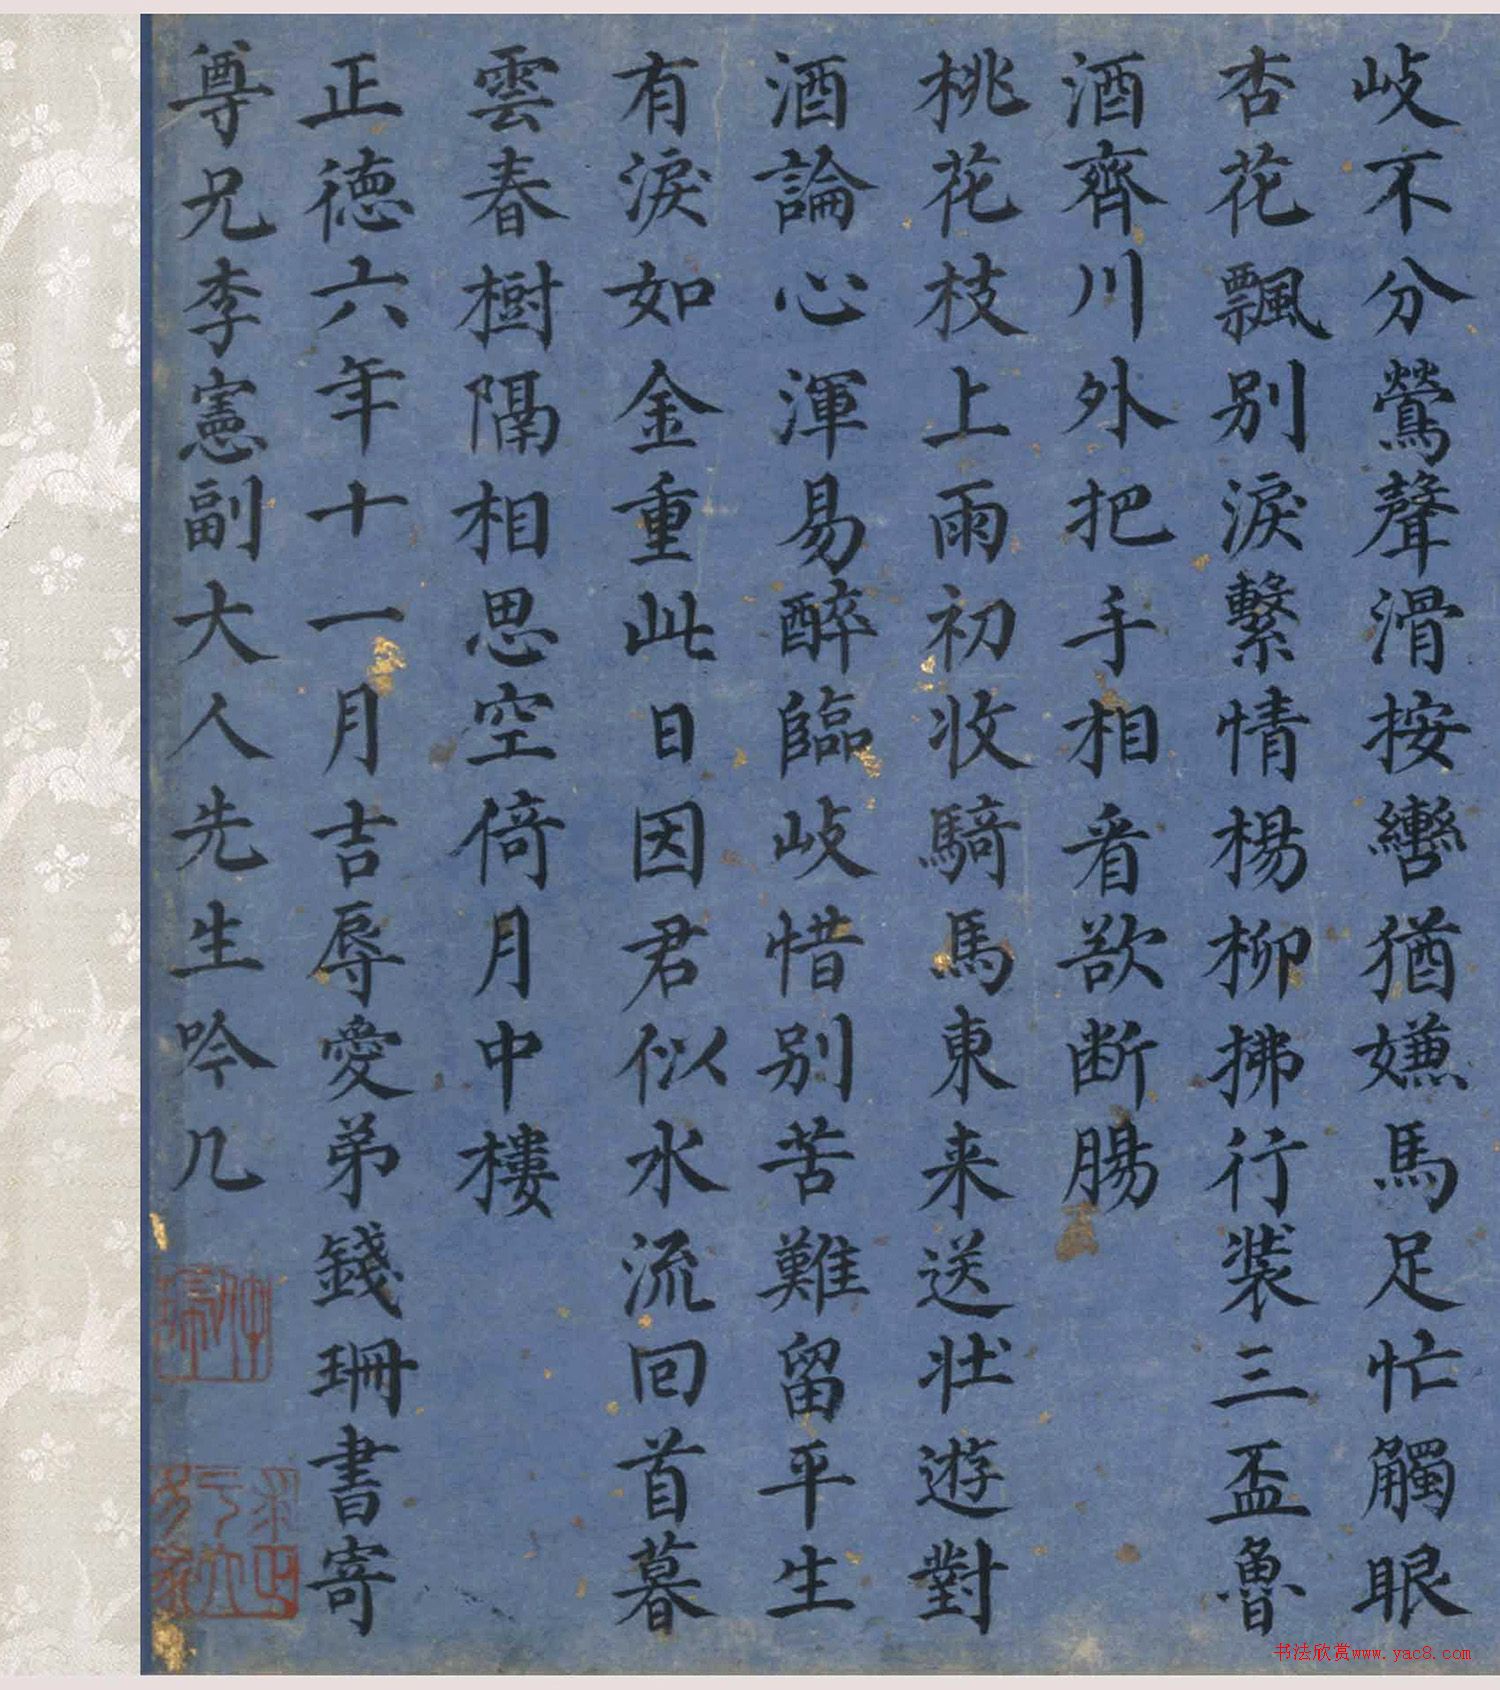 岐不分鶯聲滑按轡猶嫌馬足忙觸眼
杏花飄別淚繫情楊柳拂行裝三盃魯
酒齊川外把手相看欲断腸
桃花枝上雨初收騎馬東来送壮遊對
酒論心渾易醉臨岐惜別苦難留平生
有淚如金重此日因君似水流回首暮
雲春樹隔相思空倚月中樓
正德六年十一月吉辱愛弟錢珊書寄
尊兄李憲副大人先生吟几
书法欣赏www.yac8.com